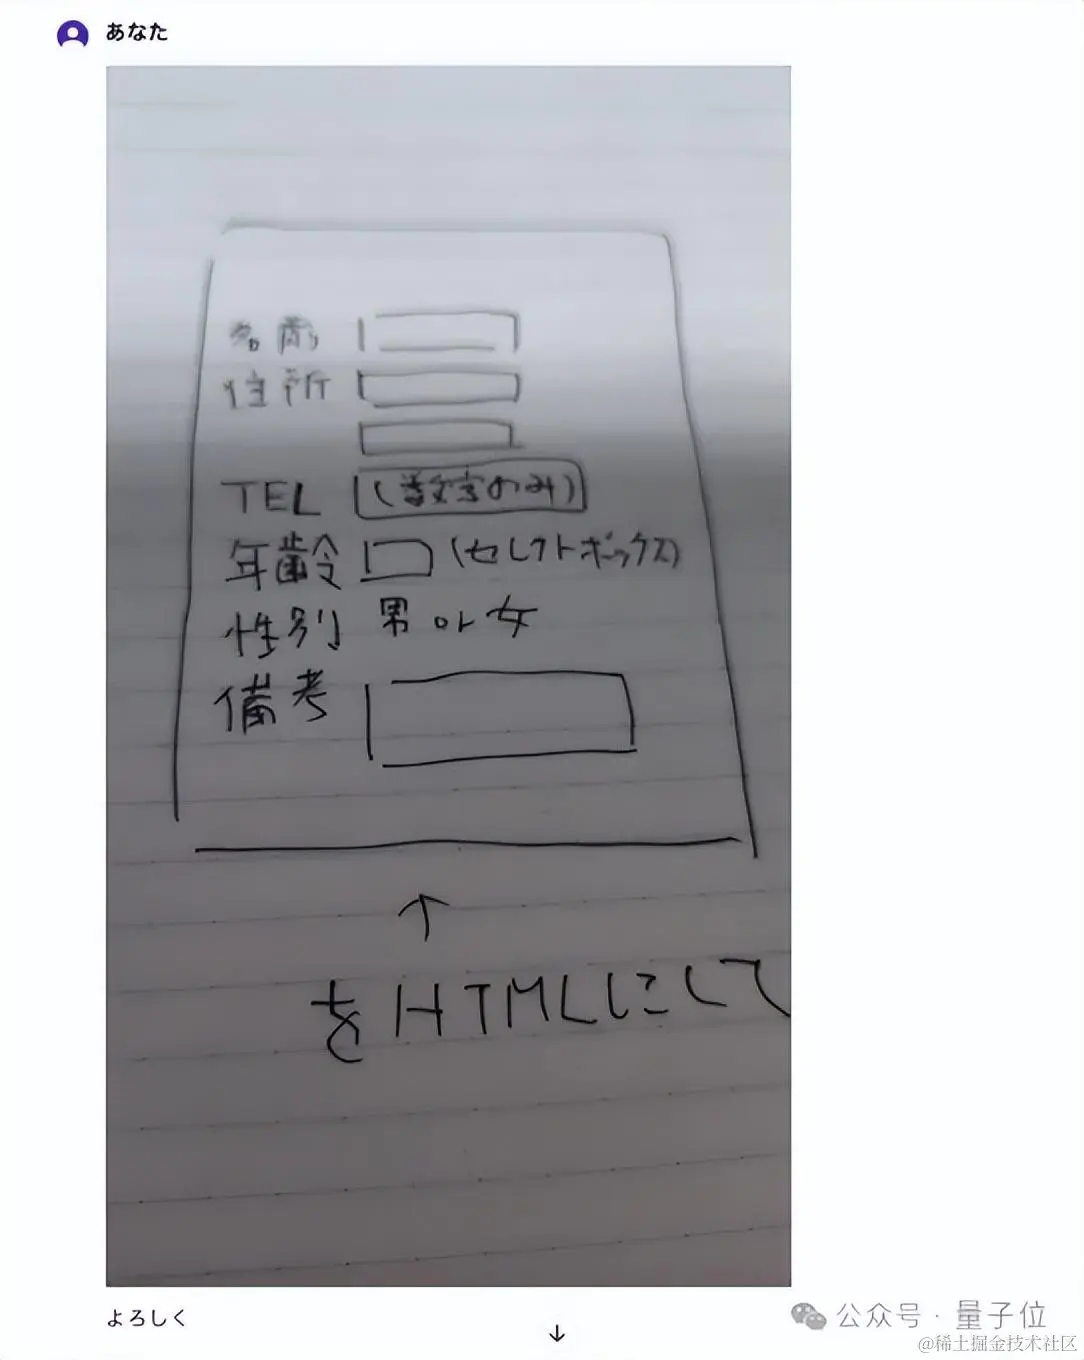 あなた
名前
住所
TEL (数字のみ)
年齢 (セレクトボックス)
性別 男 or 女
備考
↑
をHTMLにして
よろしく
↓
公众号 · 量子位
@稀土掘金技术社区